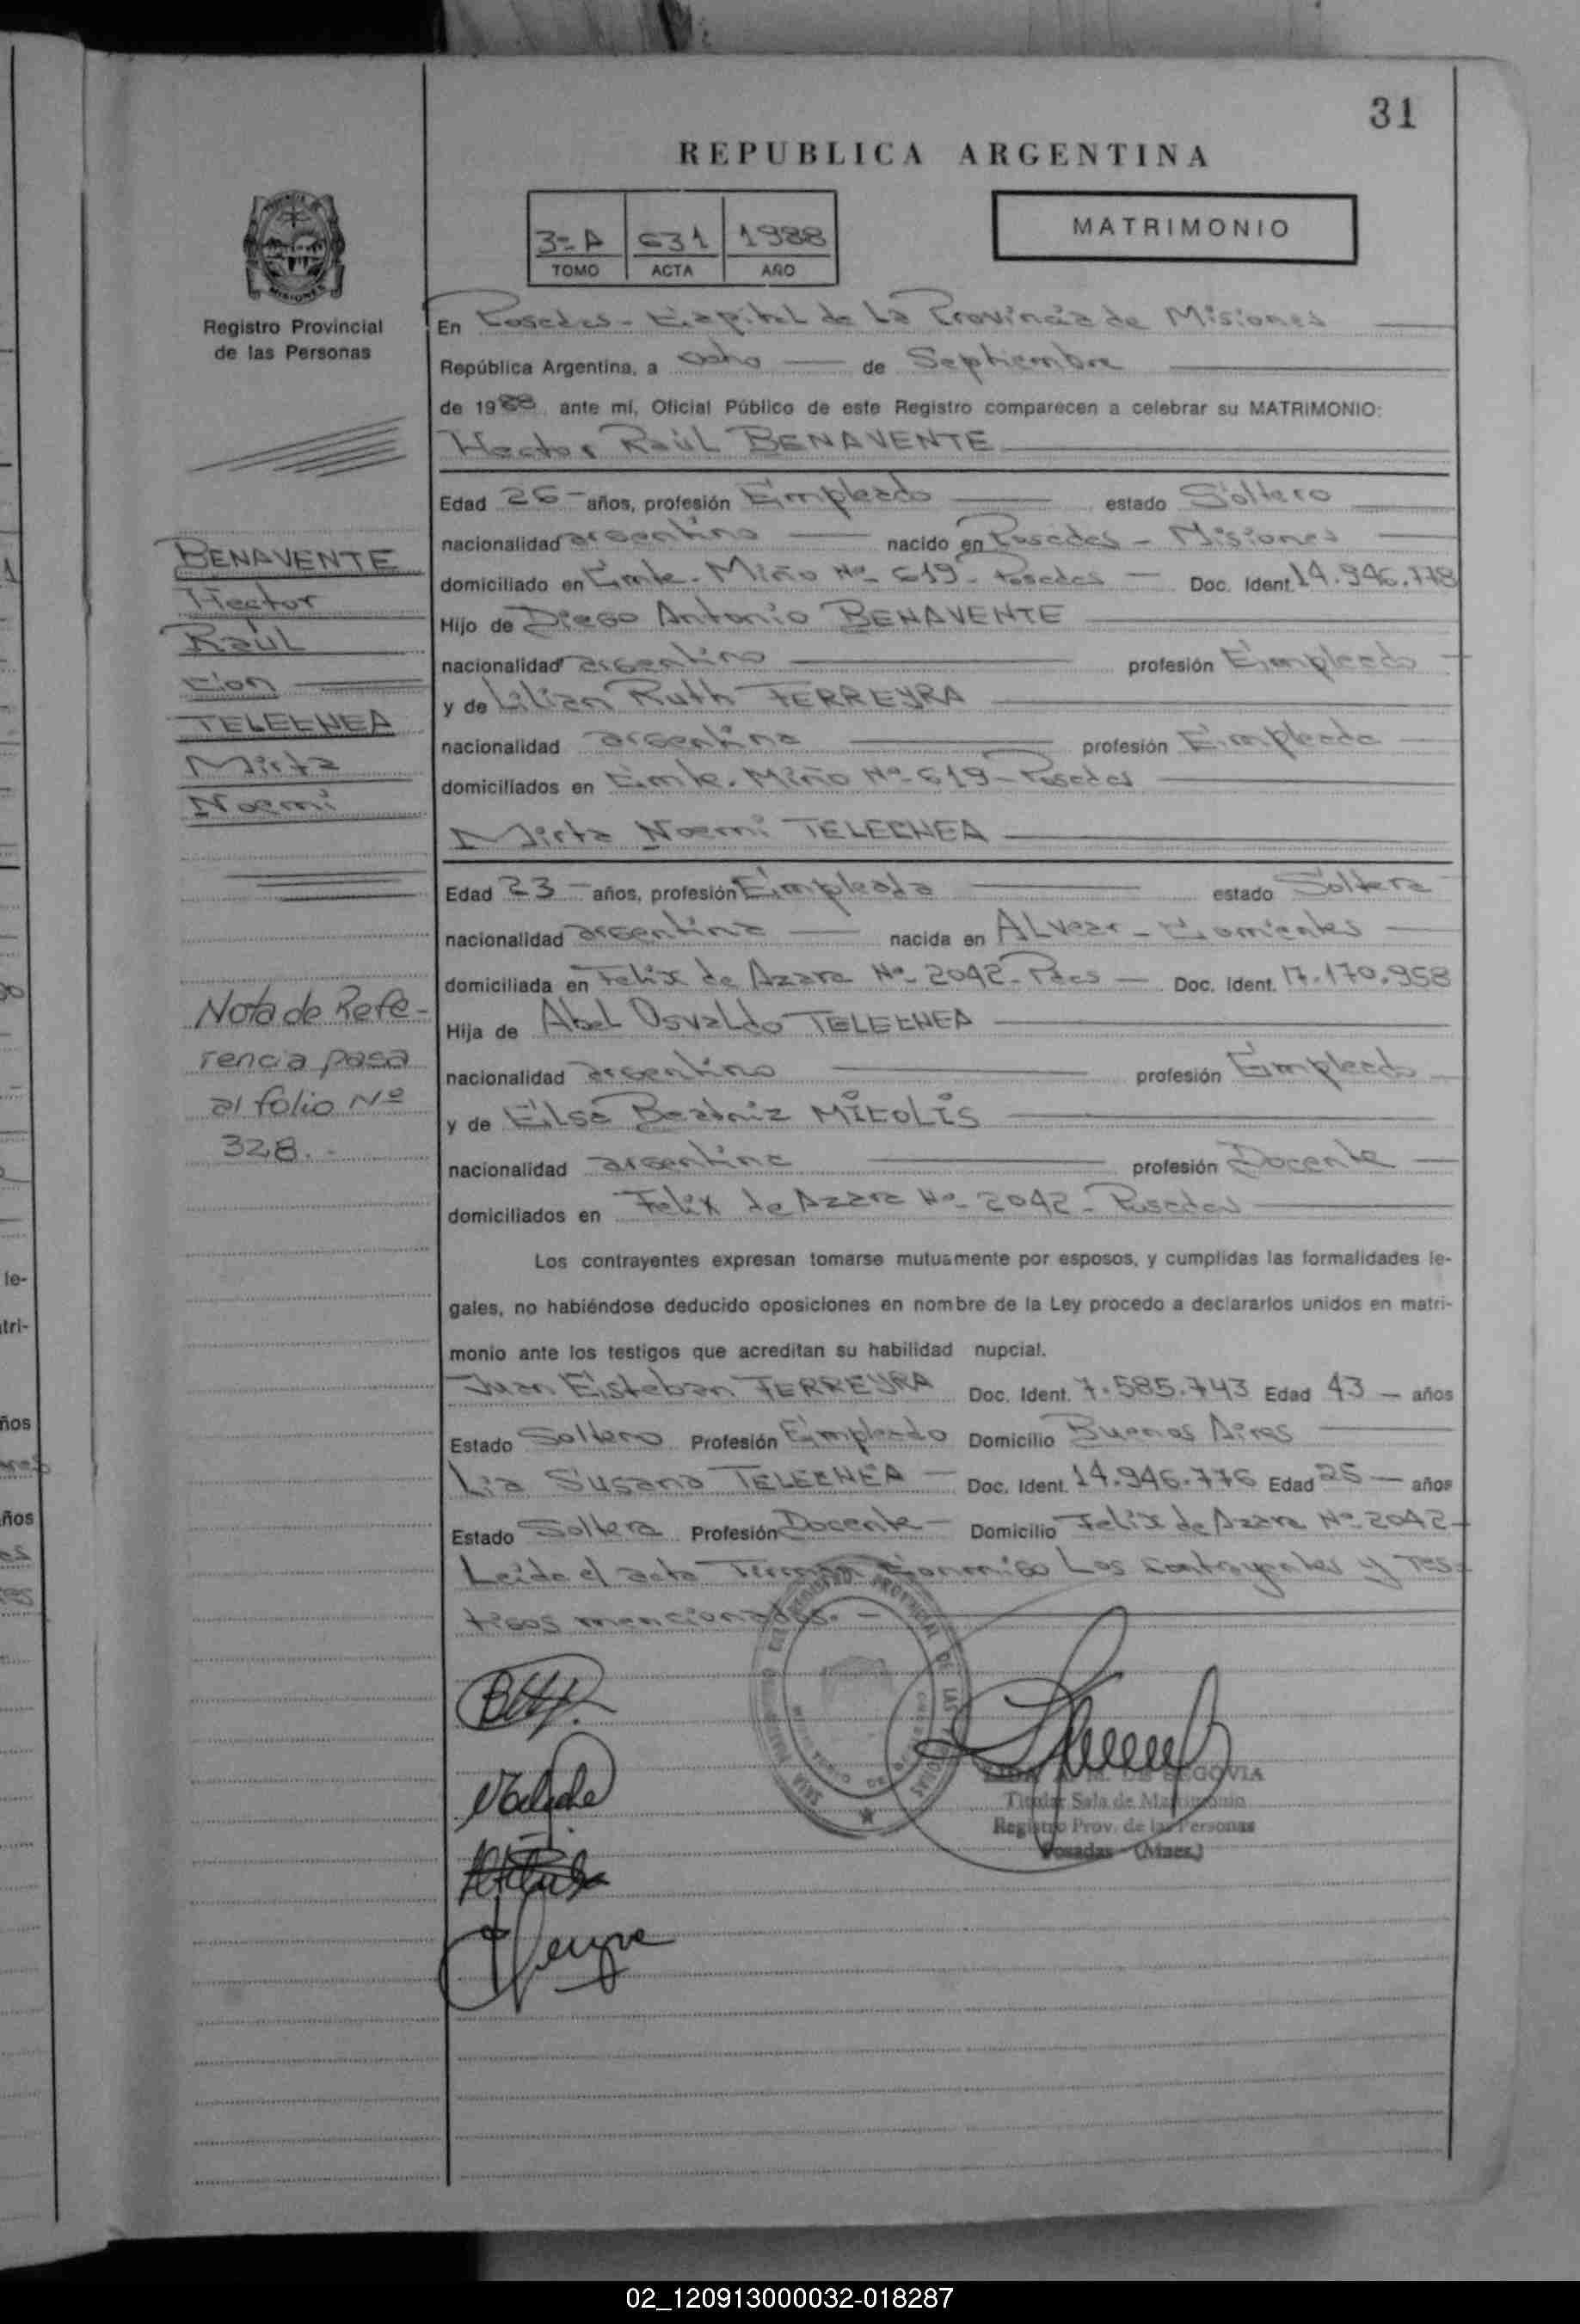 31
REPUBLICA ARGENTINA
3-A 631 1988
TOMO ACTA AÑO
MATRIMONIO
Registro Provincial
de las Personas
BENAVENTE
Hector
Raúl
con
TELECHEA
Mirta
Noemi
Nota de Refe-
rencia pasa
al folio Nº
328.-
En Posadas - Capital de La Provincia de Misiones
República Argentina, a ocho de Septiembre
de 1988, ante mí, Oficial Público de este Registro comparecen a celebrar su MATRIMONIO:
Hector Raúl BENAVENTE
Edad 26 - años, profesión Empleado estado Soltero
nacionalidad argentino nacido en Posadas - Misiones
domiciliado en Cmte. Miño Nº 619 - Posadas - Doc. Ident. 14.946.778
Hijo de Diego Antonio BENAVENTE
nacionalidad argentino profesión Empleado
y de Lilian Ruth FERREYRA
nacionalidad argentina profesión Empleada
domiciliados en Cmte. Miño Nº 619 - Posadas
Mirta Noemi TELECHEA
Edad 23 - años, profesión Empleada estado Soltera
nacionalidad argentina nacida en Alvear - Corrientes
domiciliada en Felix de Azara Nº 2042 - Pdas - Doc. Ident. 17.170.958
Hija de Abel Osvaldo TELECHEA
nacionalidad argentino profesión Empleado
y de Elsa Beatriz MICOLIS
nacionalidad argentina profesión Docente
domiciliados en Felix de Azara Nº 2042 - Posadas
Los contrayentes expresan tomarse mutuamente por esposos, y cumplidas las formalidades le-
gales, no habiéndose deducido oposiciones en nombre de la Ley procedo a declararlos unidos en matri-
monio ante los testigos que acreditan su habilidad nupcial.
Juan Esteban FERREYRA Doc. Ident. 7.585.743 Edad 43 - años
Estado Soltero Profesión Empleado Domicilio Buenos Aires
Lia Susana TELECHEA - Doc. Ident. 14.946.776 Edad 25 - años
Estado Soltera Profesión Docente - Domicilio Felix de Azara Nº 2042 -
Leida el acta Firman Conmigo Los contrayentes y Tes-
tigos mencionados. -
DE SEGOVIA
Titular Sala de Matrimonio
Registro Prov. de las Personas
Posadas - (Mnes.)
02_120913000032-018287